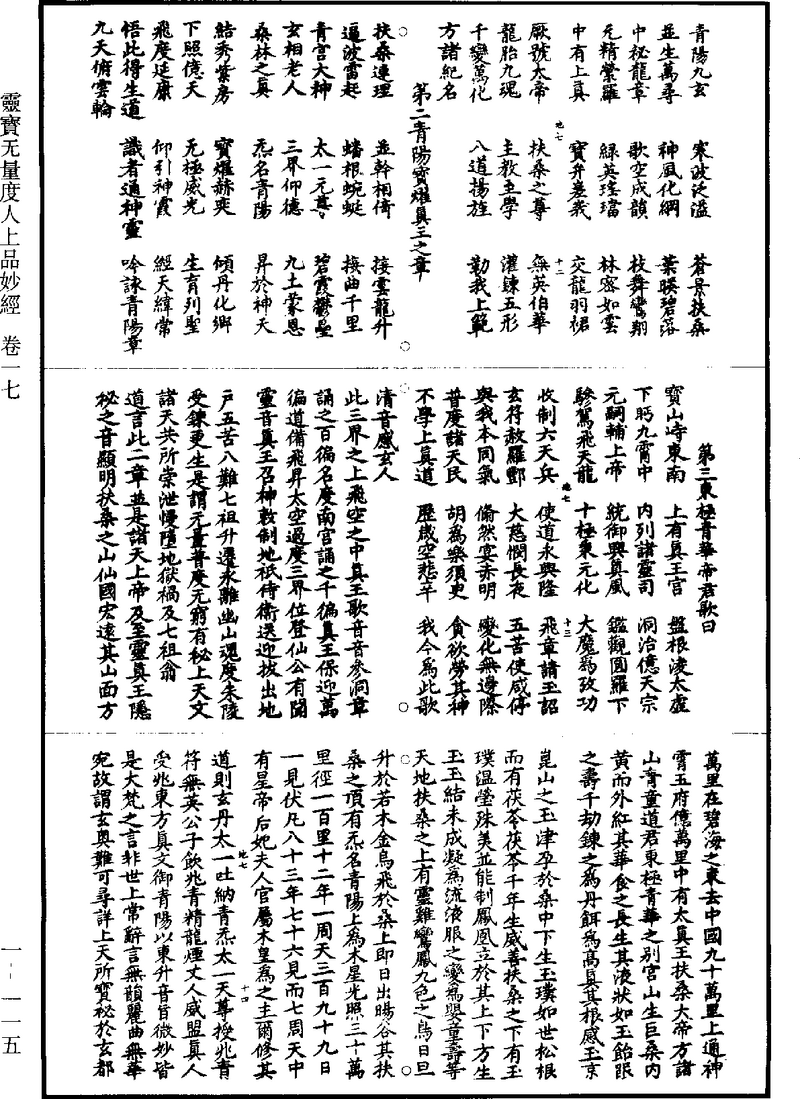 青陽九玄　寒波泛溢　蒼景扶桑
並生萬尋　神風化綱　葉暎碧落
中秘龍章　歌空成韻　枝舞鸞翔
元精縈羅　綠英瑤璫　林密如雲
中有上真　寶弁嵳峩　交龍羽裙
厥號太帝　扶桑之尊　無英伯華
龍胎九魂　主教主學　灌鍊五形
千變萬化　八道揚旌　勤我上範
方諸紀名
第二青陽寶燿真王之章
扶桑連理　並幹相倚　接雲龍升
逼波雷起　蟠根蜿蜒　接曲千里
青宫大神　太一元尊　碧霞鬱壘
玄相老人　三界仰德　九土蒙恩
桑林之真　炁名青陽　昇於神天
結秀紫房　寶燿赫奕　傾丹化鄉
下照億天　无極威光　生育列聖
飛度延康　仰引神霞　經天緯常
悟此得生道　識者通神靈　吟詠青陽章
九天俯雲輪
第三東極青華帝君歌曰
寶山峙東南　上有真王宫　盤根淩太虛
下眄九霄中　内列諸靈司　洞治億天宗
元嗣輔上帝　統御興真風　鑑觀圓羅下
驂駕飛天龍　十極稟元化　大魔為攷功
收制六天兵　使道永興隆　飛章請玉詔
玄符赦羅酆　大慈憫長夜　五苦使咸停
與我本同氣　翛然宴赤明　變化無邊際
普度諸天民　胡為樂須臾　貪欲勞其神
不學上真道　歷歲空悲辛　我今為此歌
清音感玄人
此三界之上飛空之中真王歌音音參洞章
誦之百徧名度南宫誦之千徧真王保迎萬
徧道備飛昇太空過度三界位登仙公有聞
靈音真王召神敕制地祇侍衛送迎拔出地
户五苦八難七祖升遷永離幽山魂度朱陵
受鍊更生是謂无量普度无窮有秘上天文
諸天共所崇泄慢墮地獄禍及七祖翁
道言此二章並是諸天上帝及至靈真王隱
秘之音顯明扶桑之山仙國宏遠其山面方
萬里在碧海之東去中國九十萬里上通神
霄五府億萬里中有太真王扶桑大帝方諸
山青童道君東極青華之别宫山生巨桑内
黄而外紅其華食之長生其液狀如玉飴限
之壽千劫鍊之為丹餌為高真其根感玉京
崑山之玉津孕於桑中下生玉璞如世松根
而有茯苓茯苓千年生威善扶桑之下有玉
璞温瑩殊美並能制鳳凰立於其上下方生
玉玉結未成凝為流液服之變為嬰童壽等
天地扶桑之上有靈雞鸞鳳九色之鳥日旦
升於若木金烏飛於桑上即日出暘谷其扶
桑之頂有炁名青陽上為木星光照三十萬
里徑一百里十二年一周天三百九十九日
一見伏凡八十三年七十六見而七周天中
有星帝后妃夫人官屬木皇為之主爾修其
道則玄丹太一吐納青炁太一天尊授兆青
符無英公子飲兆青精龍煙丈人威盟真人
受兆東方真文御青陽以東升音旨微妙皆
是大梵之言非世上常辭言無韻麗曲無華
宛故謂玄奥難可尋詳上天所寶秘於玄都
靈寶无量度人上品妙經　卷一七
一－一一五